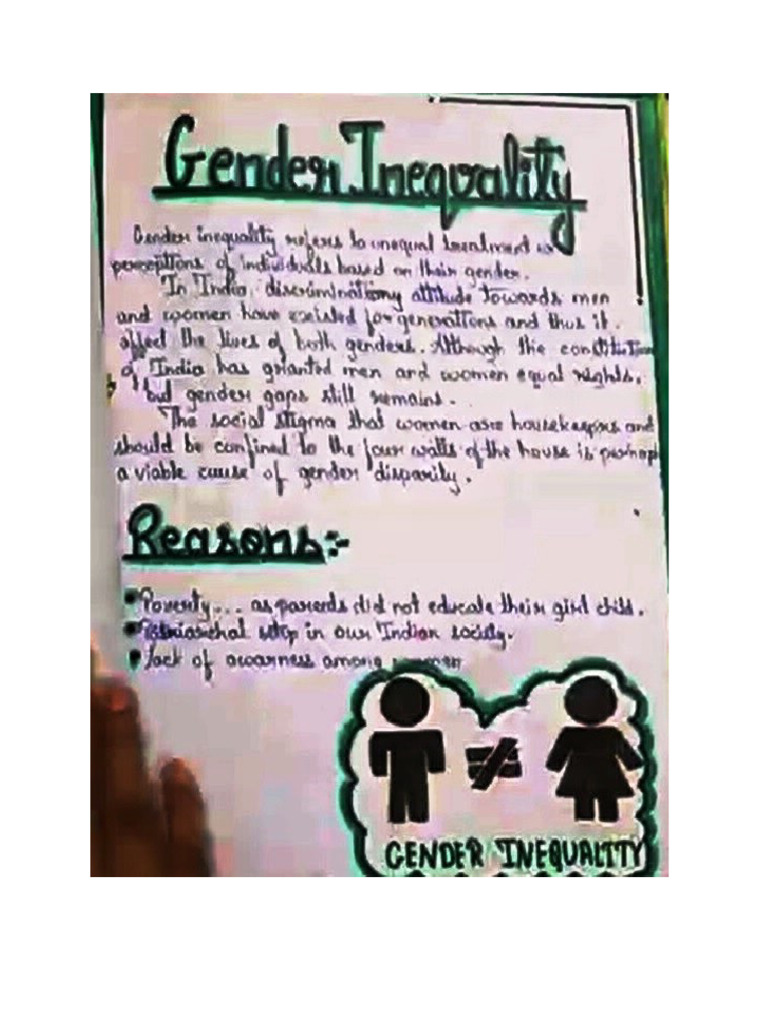 Gender Inequality
Gender inequality refers to unequal treatment or
perceptions of individuals based on their gender.
In India, discriminationy attitude towards men
and women have existed for generations and thus it
affect the lives of both genders. Although the constitution
of India has granted men and women equal rights,
but gender gaps still remains.
The social stigma that women are housekeepers and
should be confined to the four walls of the house is perhap
a viable cause of gender disparity.
Reasons:-
Poverty... as parents did not educate their girl child.
Patriarchal setup in our Indian society.
lack of awarness among women
≠
GENDER INEQUALITY